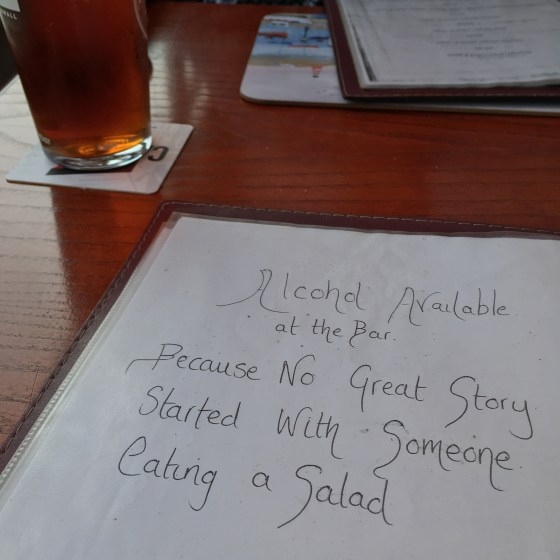 WALL
Alcohol Available
at the Bar.
Because No Great Story
Started With Someone
Eating a Salad